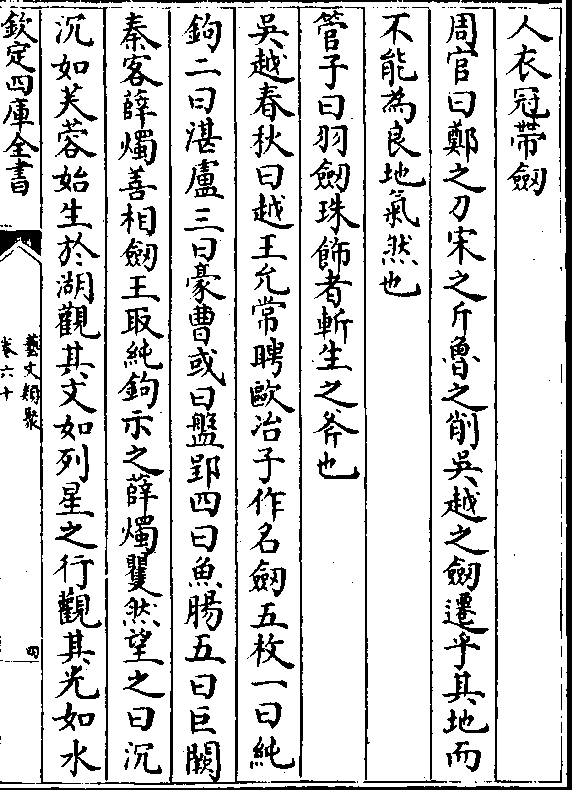 人衣冠帶劒
周官曰鄭之刀宋之斤魯之削吳越之劒遷乎其地而
不能為良地氣然也
管子曰羽劒珠飾者斬生之斧也
吳越春秋曰越王允常聘歐冶子作名劒五枚一曰純
鉤二曰湛盧三曰豪曹或曰盤郢四曰魚腸五曰巨闕
秦客薛燭善相劒王取純鉤示之薛燭矍然望之曰沉
沉如芙蓉始生於湖觀其文如列星之行觀其光如水
欽定四庫全書
藝文類聚
卷六十
四